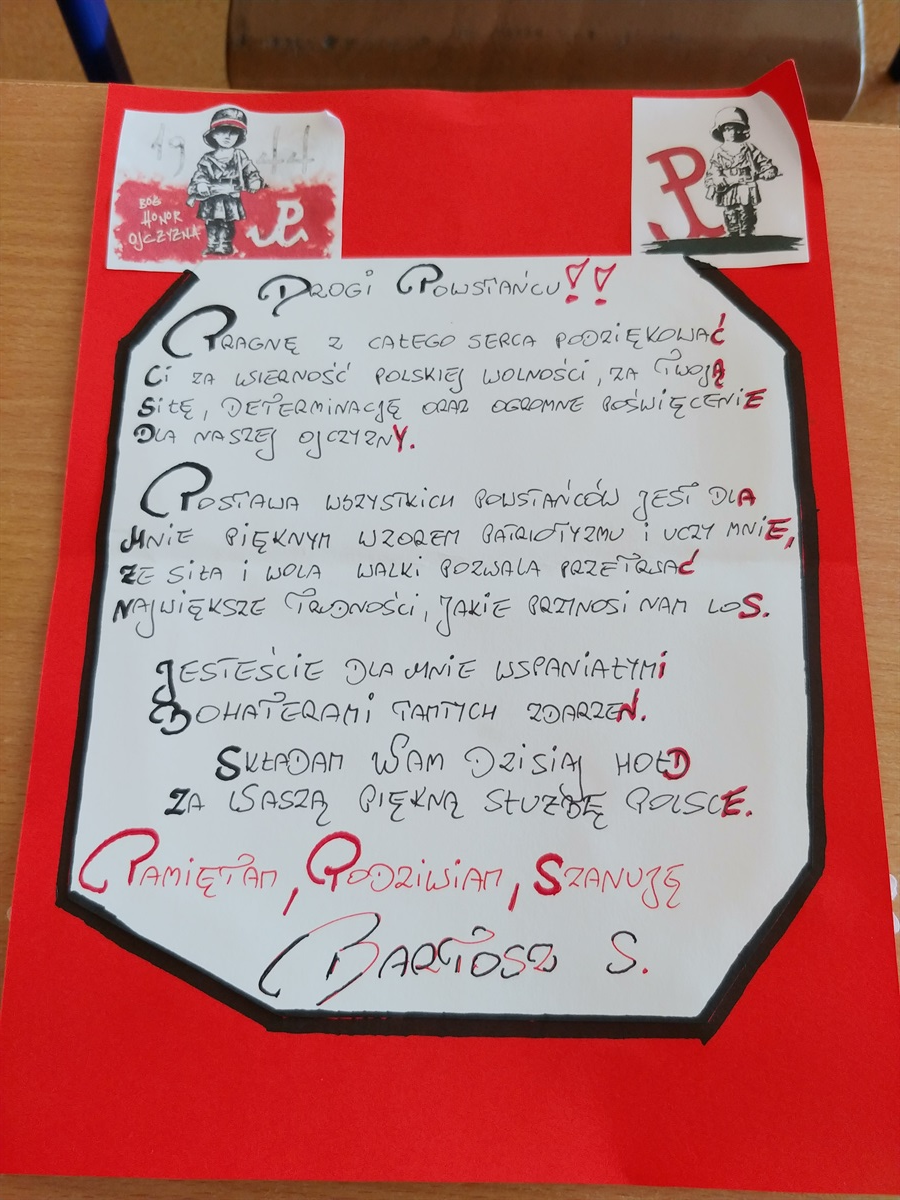 19 44
BÓG
HONOR
OJCZYZNA
DROGI POWSTAŃCU!!
PRAGNĘ Z CAŁEGO SERCA PODZIĘKOWAĆ
CI ZA WIERNOŚĆ POLSKIEJ WOLNOŚCI, ZA TWOJĄ
SIŁĘ, DETERMINACJĘ ORAZ OGROMNE POŚWIĘCENIE
DLA NASZEJ OJCZYZNY.
POSTAWA WSZYSTKICH POWSTAŃCÓW JEST DLA
MNIE PIĘKNYM WZOREM PATRIOTYZMU I UCZY MNIE,
ŻE SIŁA I WOLA WALKI POZWALA PRZETRWAĆ
NAJWIĘKSZE TRUDNOŚCI, JAKIE PRZYNOSI NAM LOS.
JESTEŚCIE DLA MNIE WSPANIAŁYMI
BOHATERAMI TAMTYCH ZDARZEŃ.
SKŁADAM WAM DZISIAJ HOŁD
ZA WASZĄ PIĘKNĄ SŁUŻBĘ POLSCE.
PAMIĘTAM, PODZIWIAM, SZANUJĘ
BARTOSZ S.